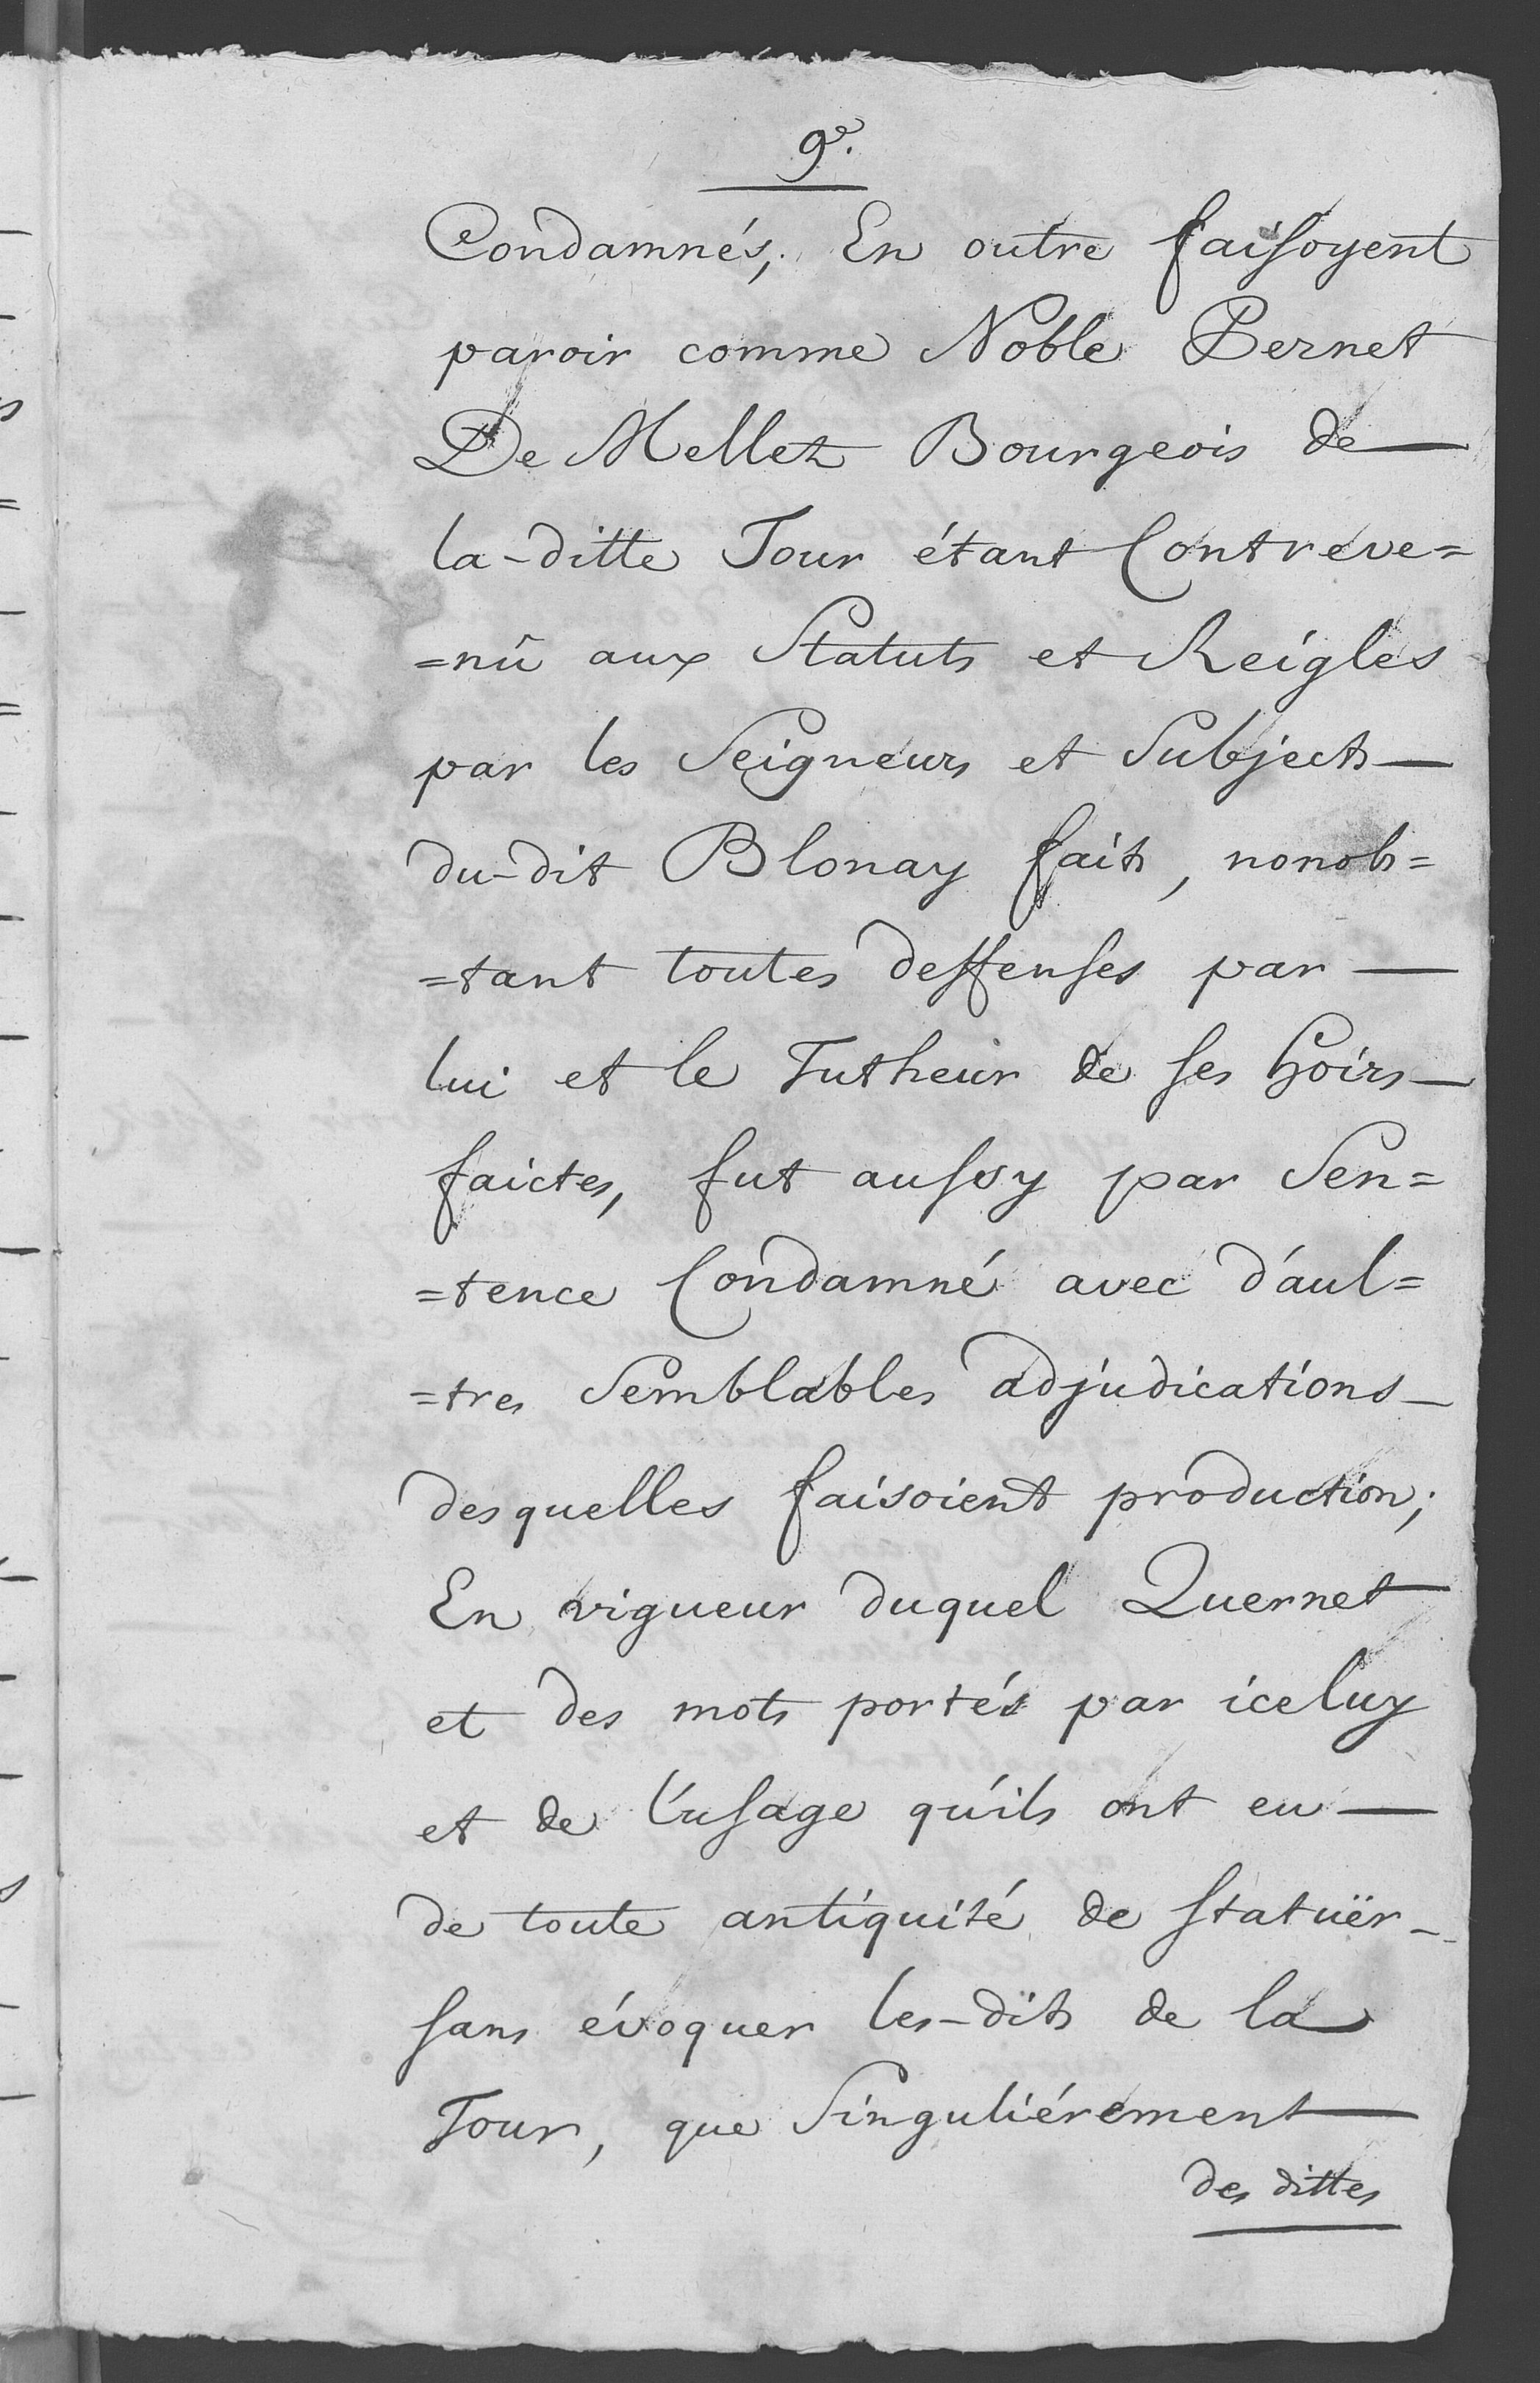 9e.
Condamnés; En outre faisoyent
paroir comme Noble Pernet
De Mellet Bourgeois de —
la-ditte Tour étant Contreve=
=nû aux Statuts et Reigles
par les Seigneurs et Subjects —
du-dit Blonay faits, nonobs=
=tant toutes deffenses par —
lui et le Tutheur de ses hoirs —
faictes, fut aussy par Sen=
=tence Condamné avec d'aul=
=tres Semblables adjudications —
desquelles faisoient production;
En vigueur duquel Quernet
et des mots portés par iceluy
et de l'usage qu'ils ont eu —
de toute antiquité de statuër —
sans évoquer les-dits de la
Tour, que Singuliérement —
des dittes